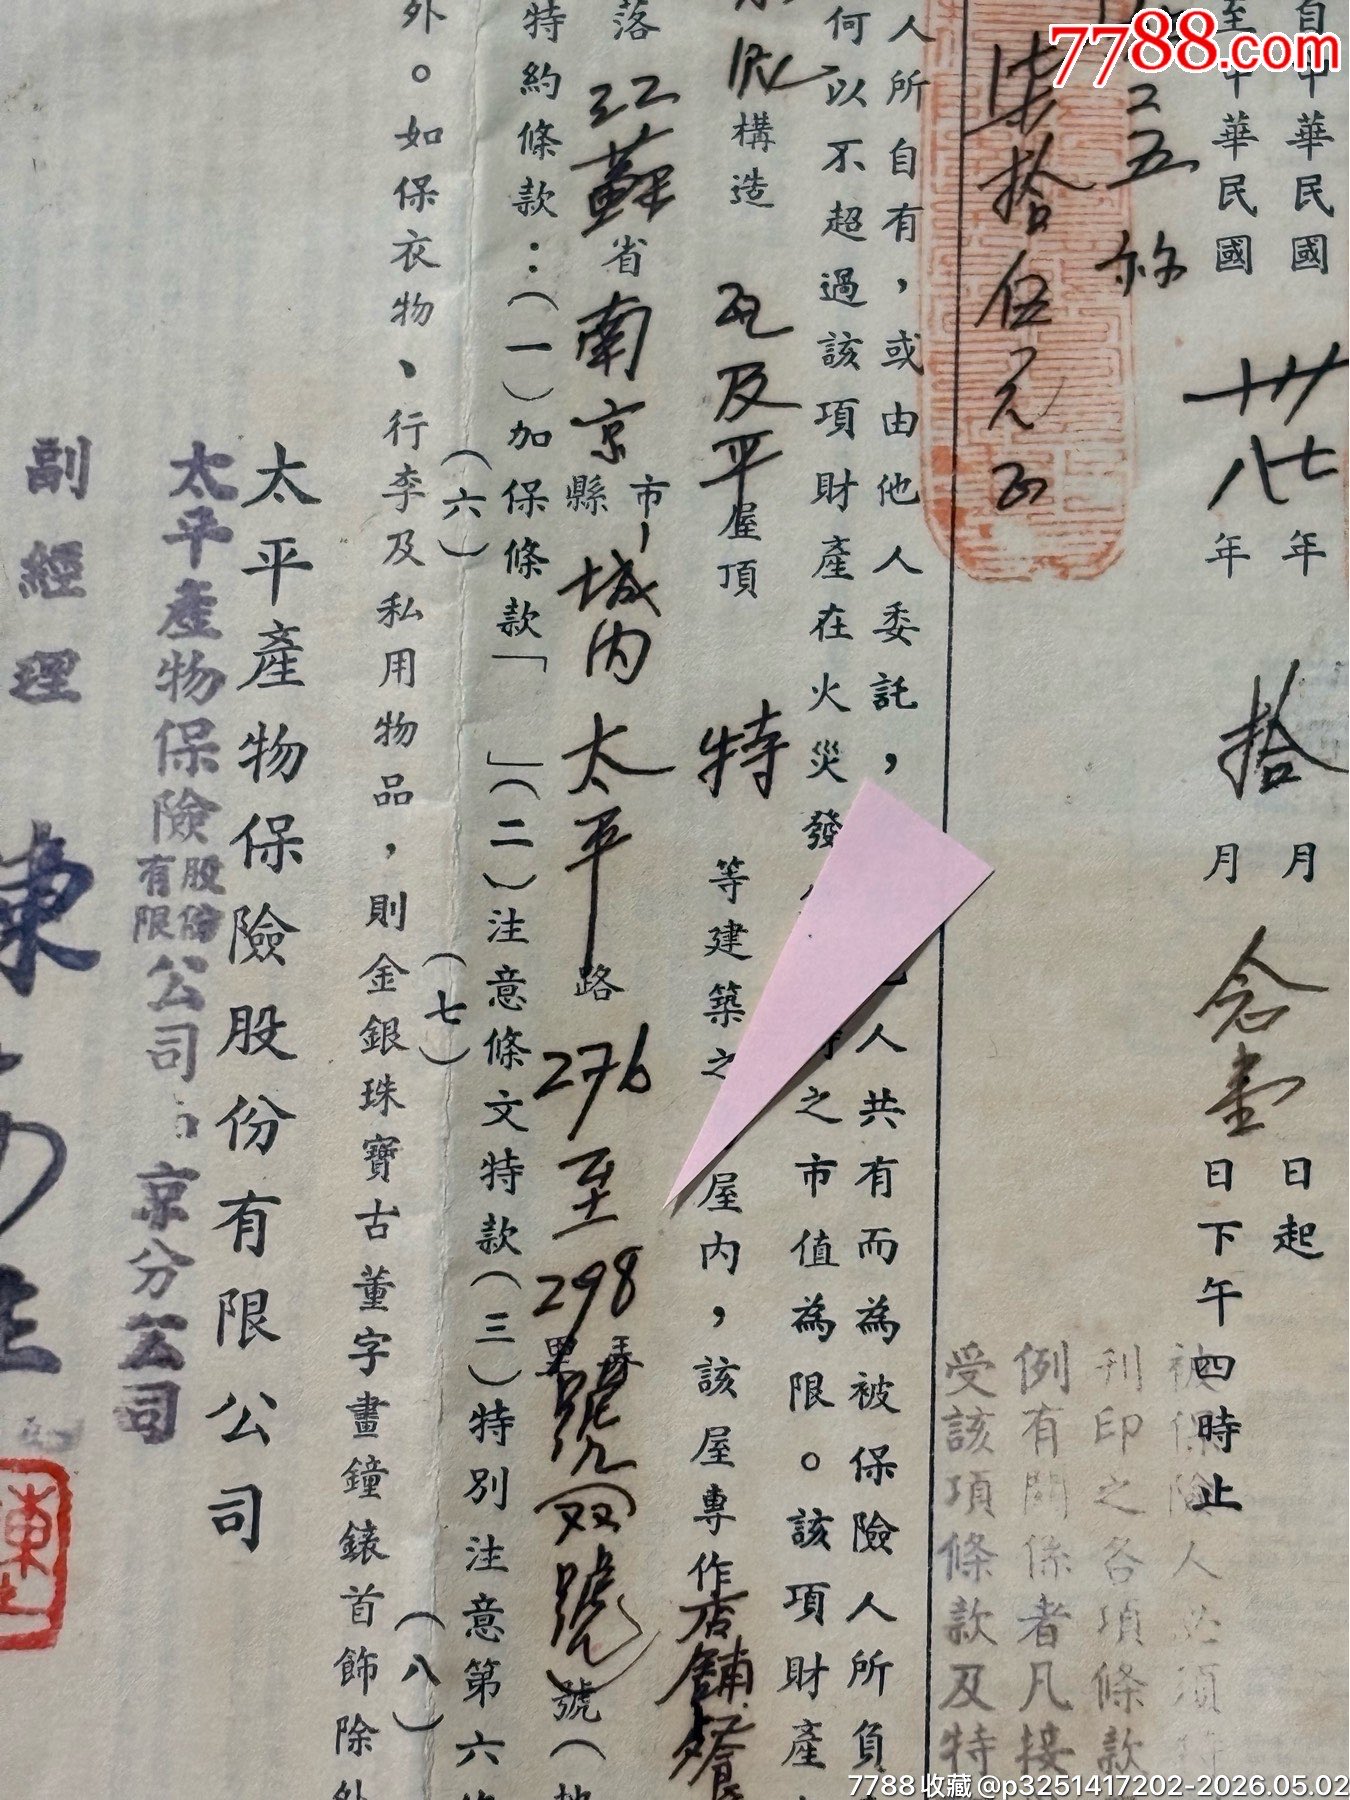 7788.com
自中華民國卅七年拾月念壹日起
至中華民國卅八年拾月念壹日下午四時止
被保險人必須
刊印之各項條款
例有關係者凡接
受該項條款及特
柒拾伍元正
人所自有，或由他人委託，人共有而為被保險人所負
何以不超過該項財產在火災發之市值為限。該項財產
構造 瓦及平屋頂 特 等建築之屋內，該屋專作店舖
落江蘇省南京市縣城內太平路276至298號双號號（
特約條款：（一）加保條款「 」（二）注意條文特款（三）特別注意第六
（六） （七） （八）
外。如保衣物、行李及私用物品，則金銀珠寶古董字畫鐘錶首飾除外
太平產物保險股份有限公司
太平產物保險股份有限公司 京分公司
副經理
陳
7788收藏@p3251417202-2026.05.02